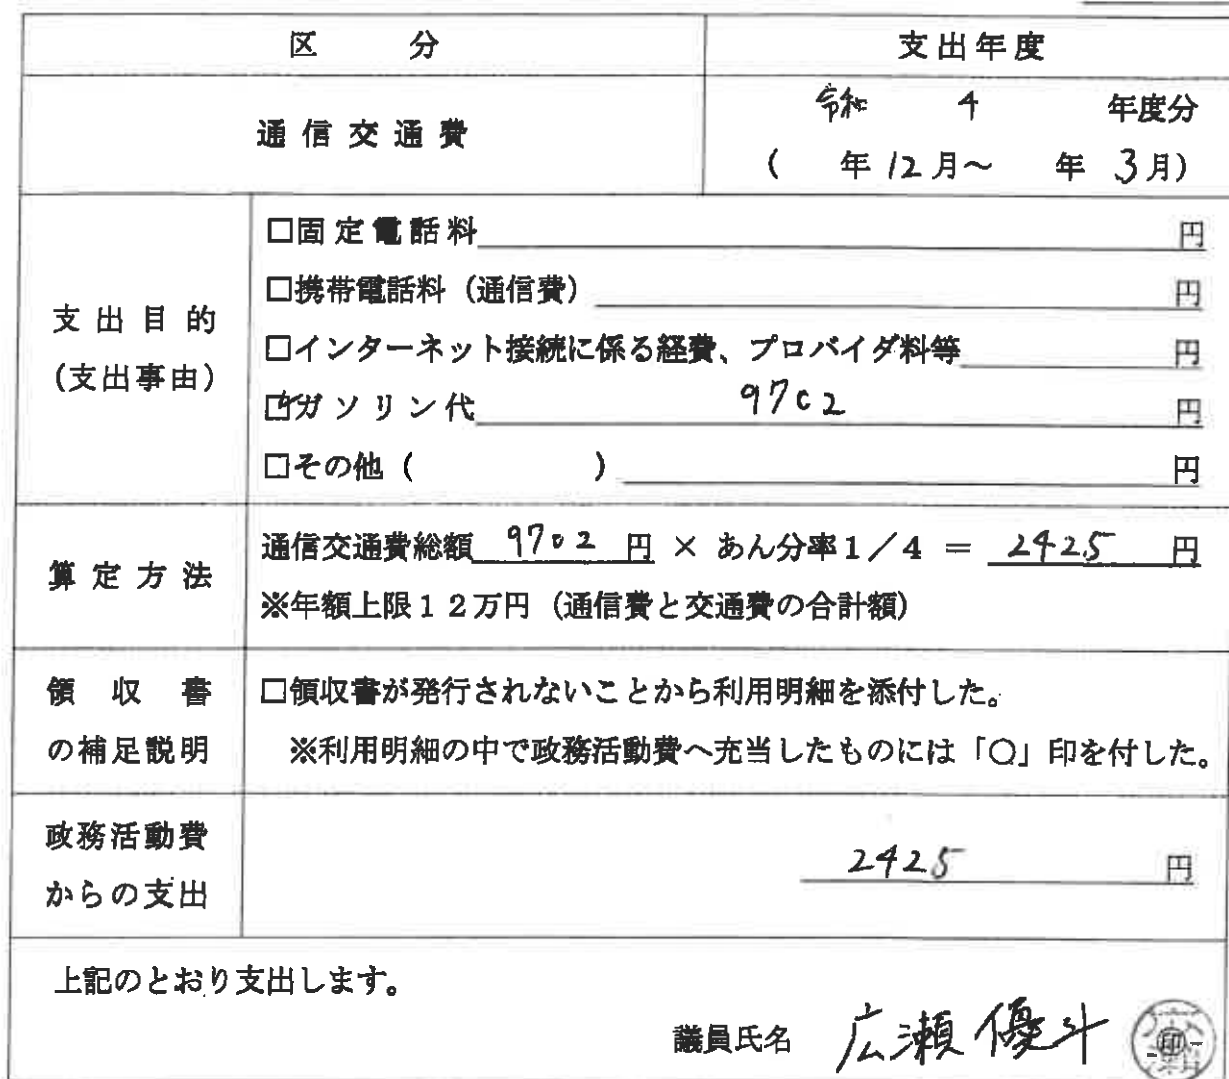 区 分 支出年度
通信交通費 令和 4 年度分
( 年 12月~ 年 3月)
支出目的
(支出事由)
□固定電話料 円
□携帯電話料(通信費) 円
□インターネット接続に係る経費、プロバイダ料等 円
☑ガソリン代 9702 円
□その他( ) 円
算定方法
通信交通費総額 9702 円 × あん分率1/4 = 2425 円
※年額上限12万円(通信費と交通費の合計額)
領収書
の補足説明
□領収書が発行されないことから利用明細を添付した。
※利用明細の中で政務活動費へ充当したものには「○」印を付した。
政務活動費
からの支出
2425 円
上記のとおり支出します。
議員氏名 広瀬優斗 印